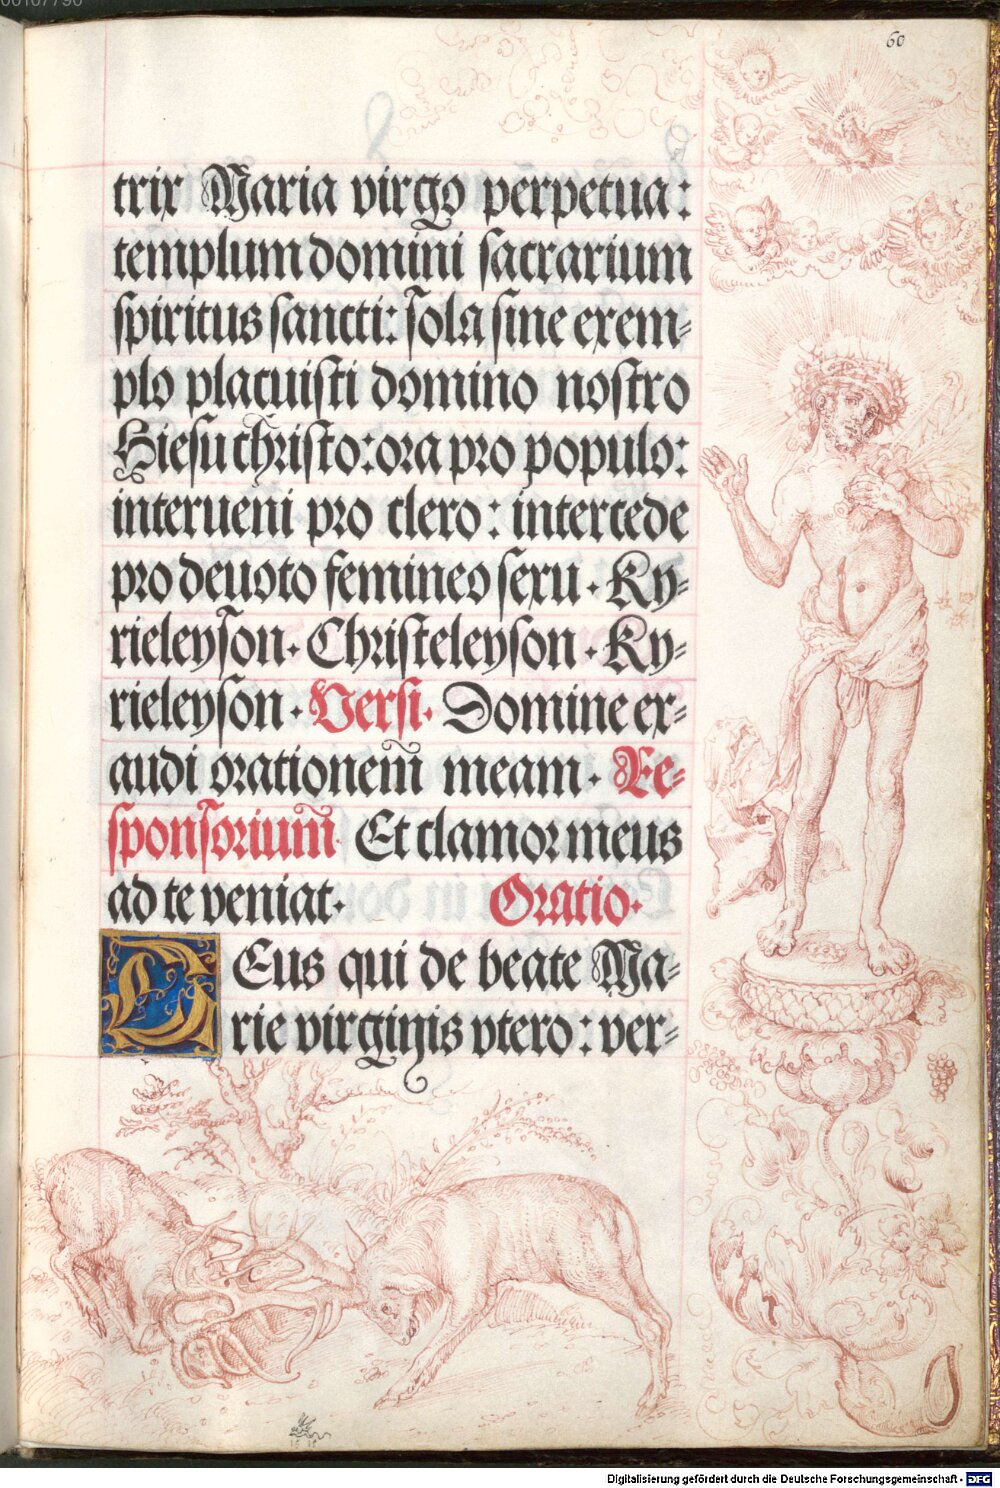 60
trix Maria virgo perpetua:
templum domini sacrarium
spiritus sancti: sola sine exem=
plo placuisti domino nostro
Hiesu christo: ora pro populo:
interueni pro clero: intercede
pro deuoto femineo sexu. Ky=
rieleyson. Christeleyson. Ky=
rieleyson. Versi. Domine ex=
audi orationem meam. Re=
sponsorium Et clamor meus
ad te veniat. Oratio.
DEus qui de beate Ma=
rie virginis vtero: ver=
Digitalisierung gefördert durch die Deutsche Forschungsgemeinschaft - DFG